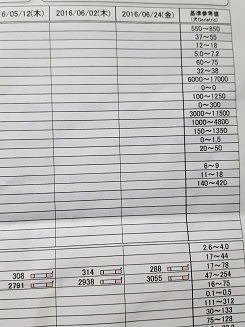 6/05/12(木) 2016/06/02(木) 2016/06/24(金) 基準参考値
(犬Geriatric)
550～850
37～55
12～18
5.0～7.2
60～75
32～38
6000～17000
0～0
100～1250
0～300
3000～11500
1000～4800
150～1350
0～1.5
20～50
6～9
11～18
140～420
2.6～4.0
17～44
17～78
308 314 288 47～254
2791 2938 3055 16～75
0.1～0.5
111～312
30～133
75～128